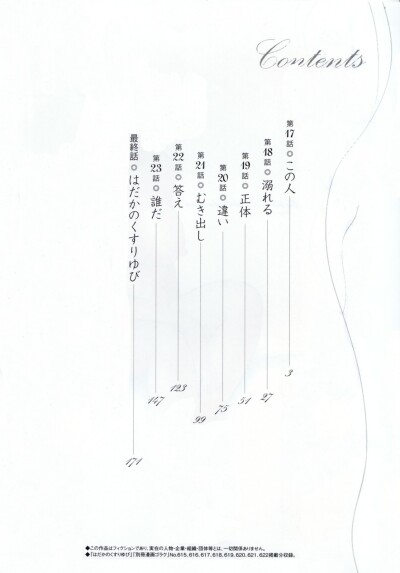 Contents
第17話 この人 3
第18話 溺れる 27
第19話 正体 51
第20話 違い 75
第21話 むき出し 99
第22話 答え 123
第23話 誰だ 147
最終話 はだかのくすりゆび 171
◆この作品はフィクションであり、実在の人物・企業・組織・団体等とは、一切関係ありません。
◆「はだかのくすりゆび」「別冊漫画ゴラク」No.615, 616, 617, 618, 619, 620, 621, 622掲載分収録。